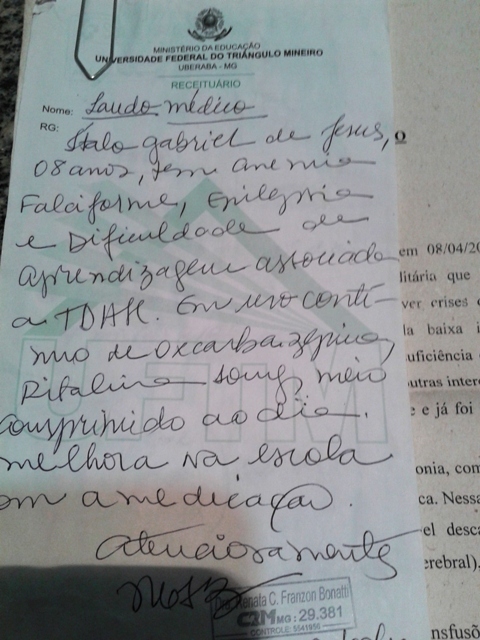 MINISTÉRIO DA EDUCAÇÃO
UNIVERSIDADE FEDERAL DO TRIÂNGULO MINEIRO
UBERABA - MG
RECEITUÁRIO
Nome: Laudo médico
RG: Ítalo gabriel de Jesus,
08 anos, tem anemia
Falciforme, Epilepsia
e Dificuldade de
aprendizagem associada
a TDAH. Em uso contí-
nuo de oxcarbazepina,
Ritalina 10mg, meio
comprimido ao dia.
melhora na escola
om a medicação.
atenciosamente
Renata C. Franzon Bonatti
CRM MG: 29.381
CONTROLE: 5541956
UFTM
o
em 08/04/20
litária que
ver crises
la baixa i
uficiência
outras inter
e e já foi
onia, com
ca. Nessa
el desca
erebral),
nsfusõ